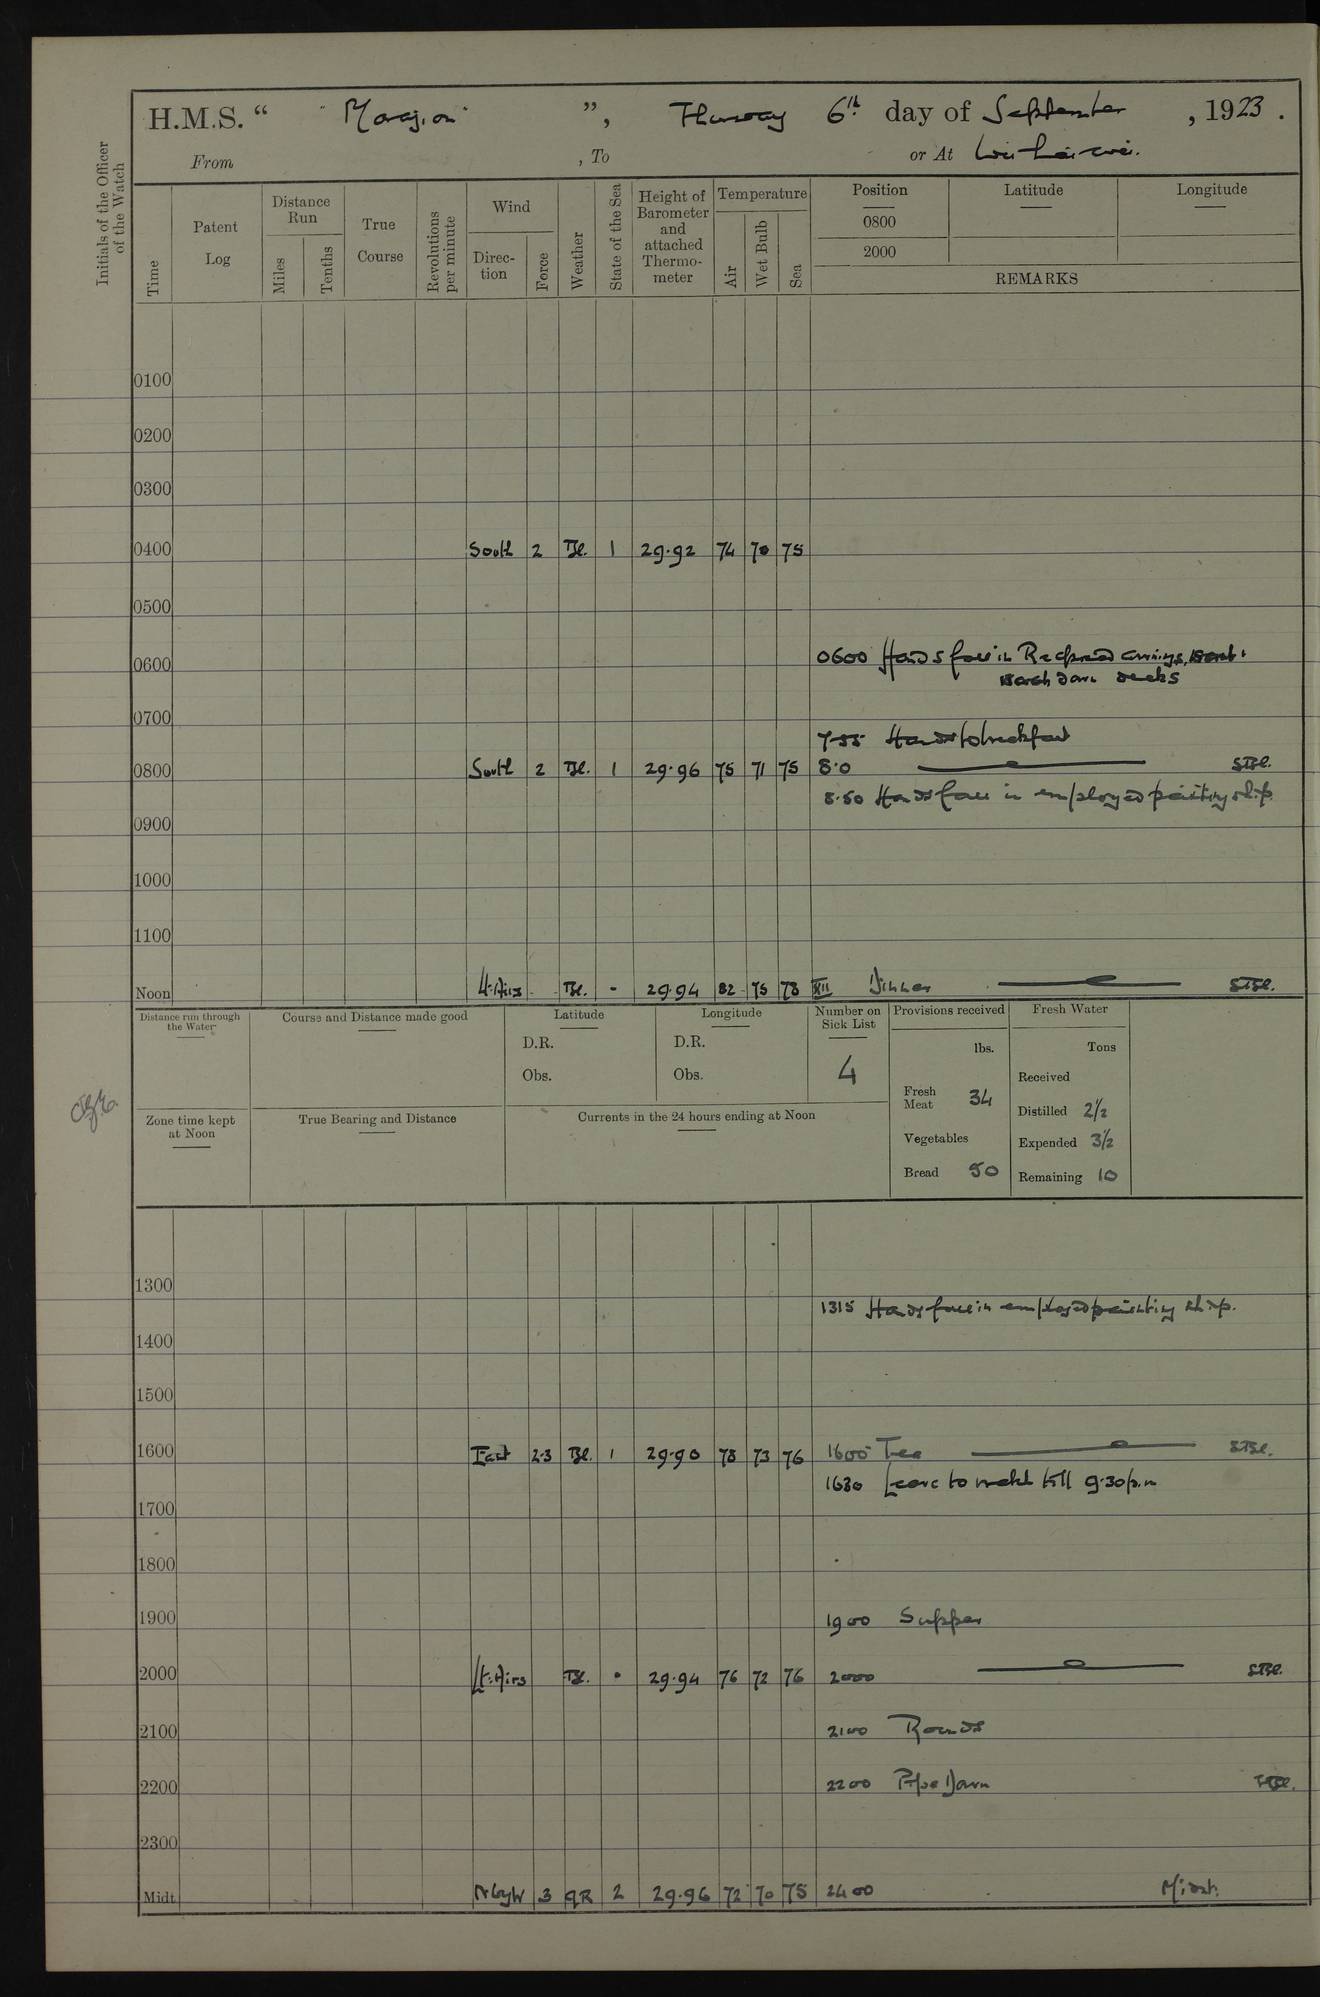 H.M.S. “ " Marazion " ”, Thursday 6th day of September , 1923 .
From , To or At Wei-hai-wei.
Initials of the Officer of the Watch
Time
Patent Log
Distance Run
Miles
Tenths
True Course
Revolutions per minute
Wind
Direction
Force
Weather
State of the Sea
Height of Barometer and attached Thermometer
Temperature
Air
Wet Bulb
Sea
Position
Latitude
Longitude
0800
2000
REMARKS
0100
0200
0300
0400 South 2 Bc. 1 29.92 74 70 75
0500
0600 0600 Hands fall in Rigged awnings,
wash down decks
0700
7-55 Hands to breakfast
0800 South 2 Bc. 1 29.96 75 71 75 8.0
8.50 Hands fall in employed painting ship
0900
1000
1100
Noon Lt. Airs - Bc. - 29.94 82 75 78 XII Dinner
Distance run through the Water
Course and Distance made good
Latitude
D.R.
Obs.
Longitude
D.R.
Obs.
Number on Sick List
4
Provisions received
lbs.
Fresh Meat 34
Vegetables
Bread 50
Fresh Water
Tons
Received
Distilled 2½
Expended 3½
Remaining 10
Zone time kept at Noon
True Bearing and Distance
Currents in the 24 hours ending at Noon
1300
1315 Hands fall in employed painting ship.
1400
1500
1600 East 2.3 Bc. 1 29.90 78 73 76 1600 Tea
1630 Leave to watch till 9.30 p.m
1700
1800
1900 1900 Supper
2000 Lt. Airs Bc. • 29.94 76 72 76 2000
2100 2100 Rounds
2200 2200 Pipe Down
2300
Midt NbyW 3 qR 2 29.96 72 70 75 2400 Midt.